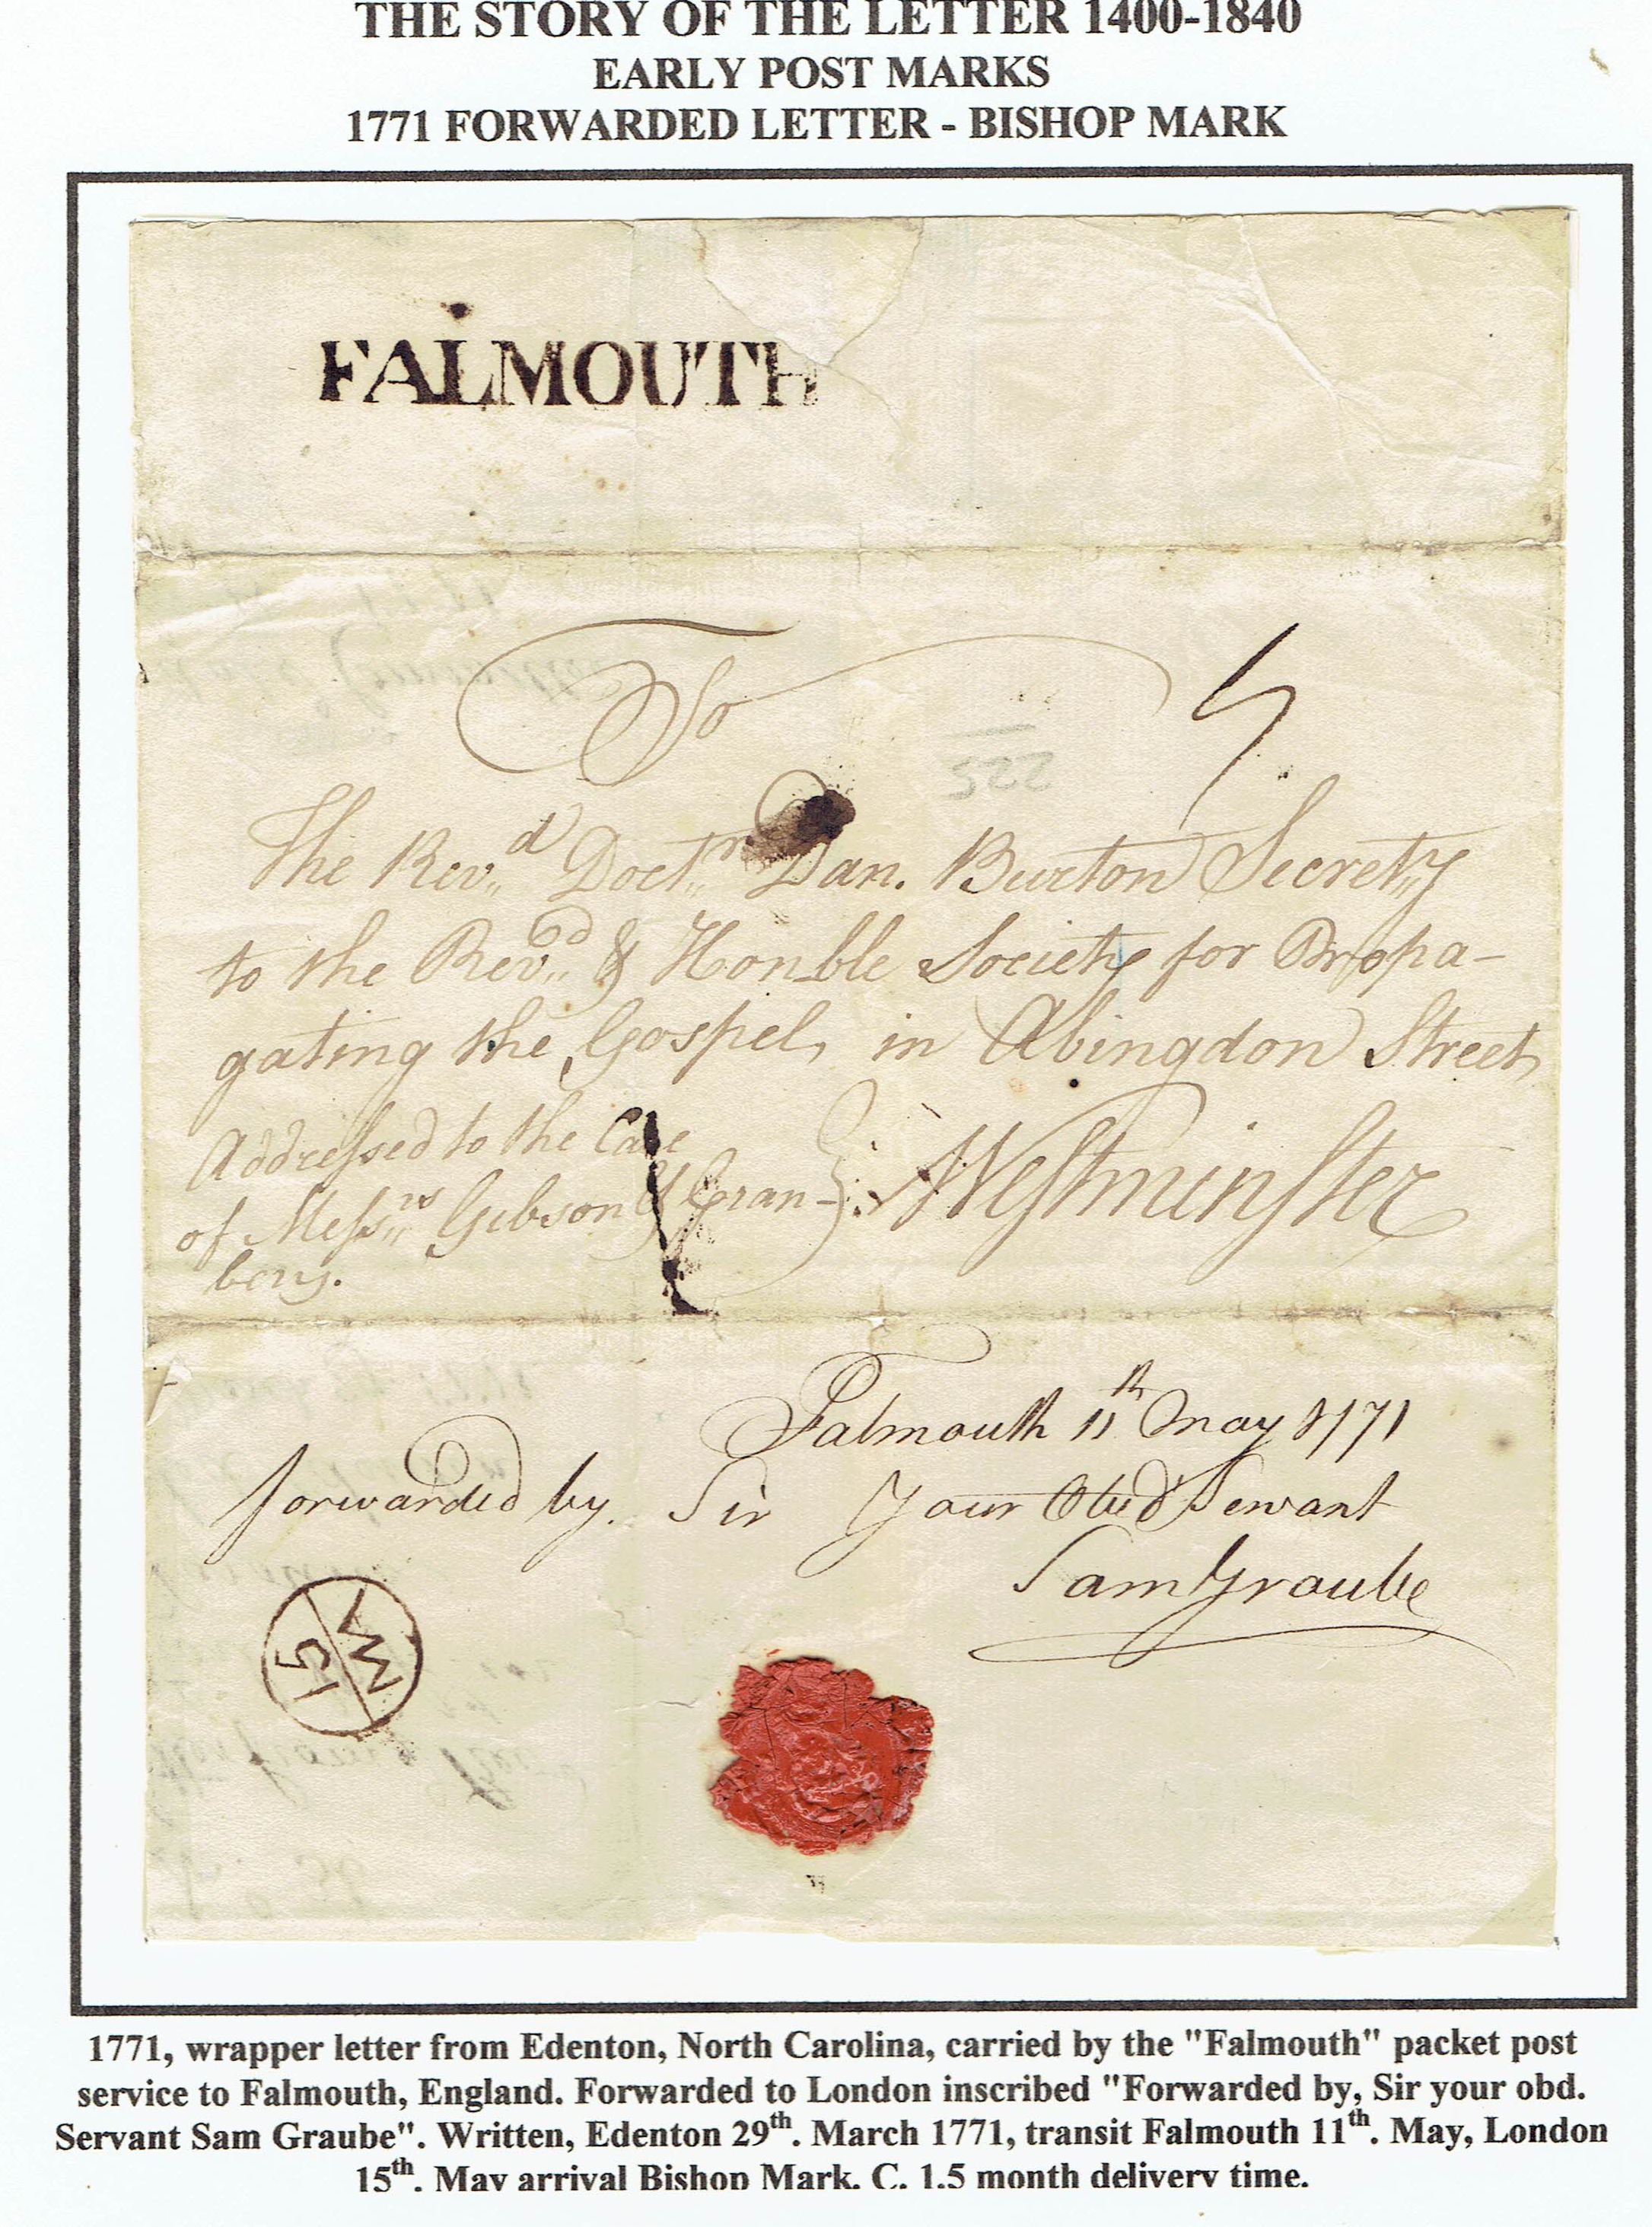 THE STORY OF THE LETTER 1400-1840
EARLY POST MARKS
1771 FORWARDED LETTER - BISHOP MARK
FALMOUTH
To
522
The Rev.d Doct.r Dan. Burton Secret.y
to the Rev.d & Honble Society for Propa-
gating the Gospel, in Abingdon Street
Addressed to the Care
of Mess.rs Gibson & Gran-
bery.
Westminster
Falmouth 11th May 1771
forwarded by. Sir Your Obed Servant
Sam Graube
15
MA
1771, wrapper letter from Edenton, North Carolina, carried by the "Falmouth" packet post
service to Falmouth, England. Forwarded to London inscribed "Forwarded by, Sir your obd.
Servant Sam Graube". Written, Edenton 29th. March 1771, transit Falmouth 11th. May, London
15th. May arrival Bishop Mark. C. 1.5 month delivery time.